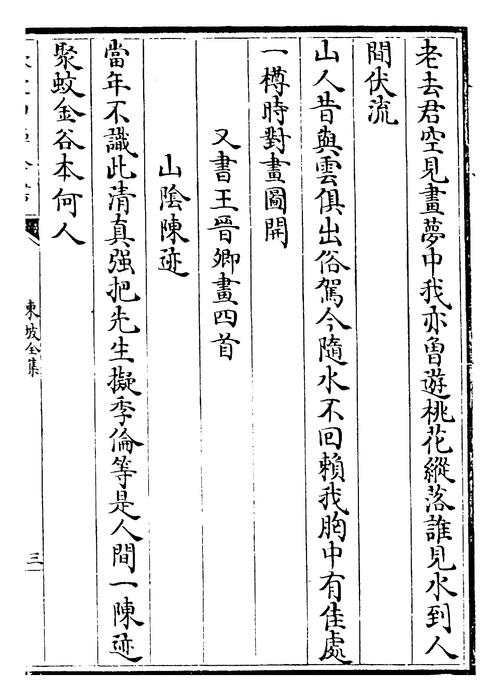 老去君空見畫夢中我亦曾遊桃花縱落誰見水到人
間伏流
山人昔與雲俱出俗駕今隨水不回賴我胸中有佳處
一樽時對畫圖開
又書王晉卿畫四首
山陰陳迹
當年不識此清真强把先生擬季倫等是人間一陳迹
聚蚊金谷本何人
東坡全集
三